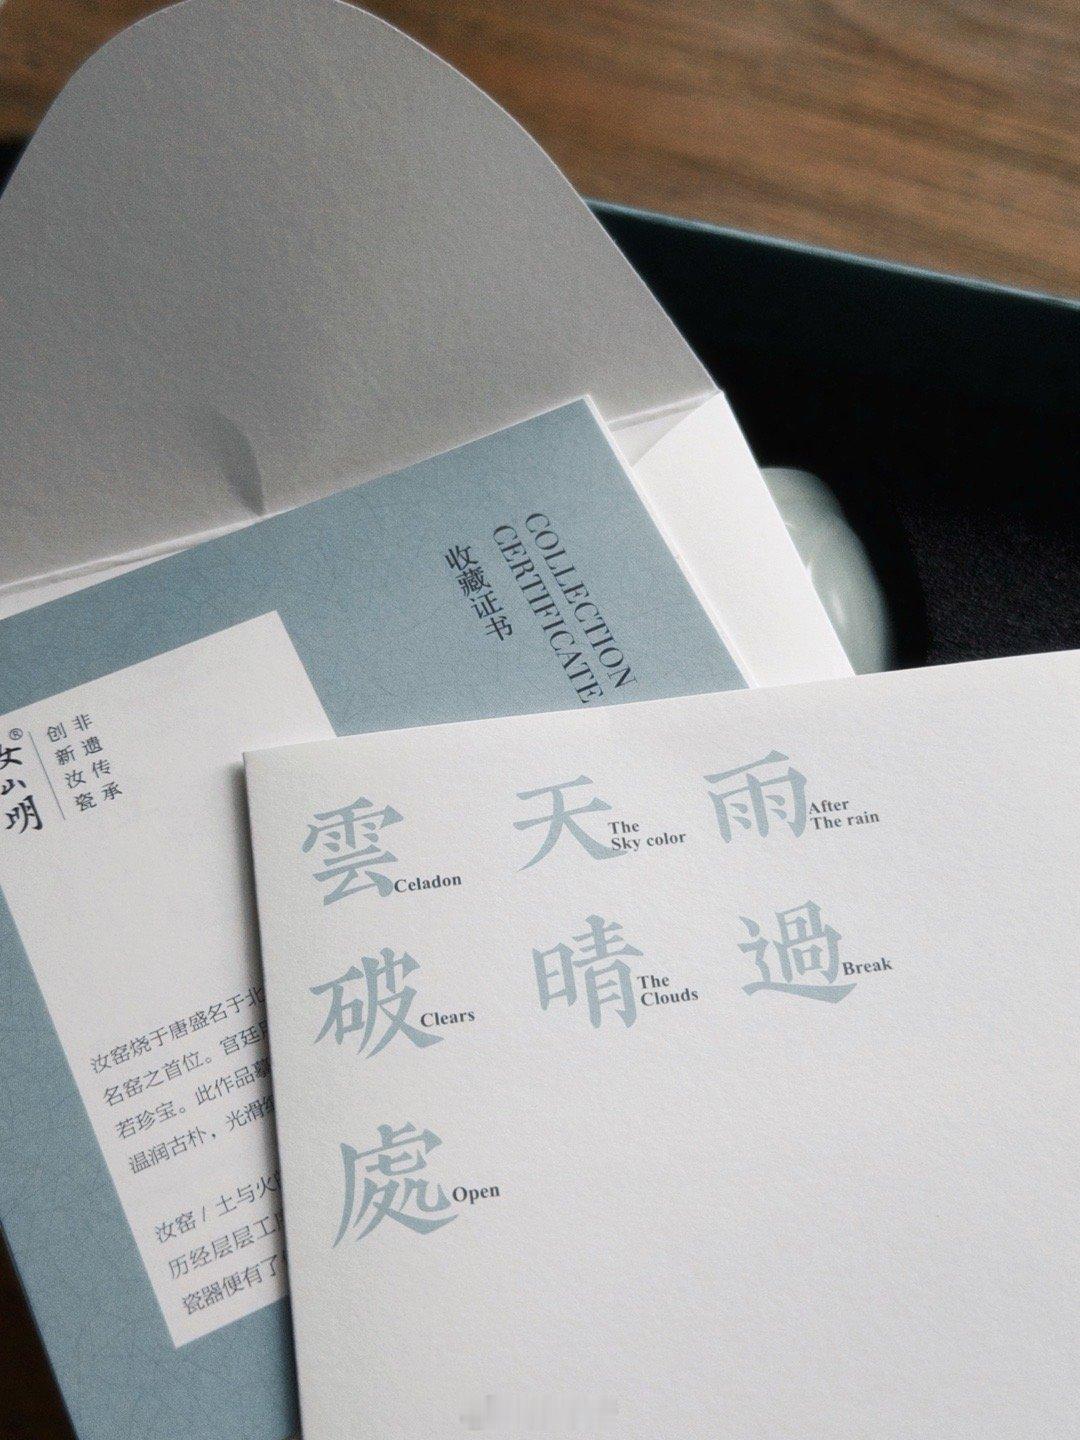 COLLECTION
CERTIFICATE
收藏证书
女山明®
非遗传承
创新汝瓷
汝窑烧于唐盛名于北
名窑之首位。宫廷
若珍宝。此作品
温润古朴，光滑
汝窑 / 土与火
历经层层工
瓷器便有了
雨 After
The rain
過 Break
天 The
Sky color
晴 The
Clouds
雲 Celadon
破 Clears
處 Open